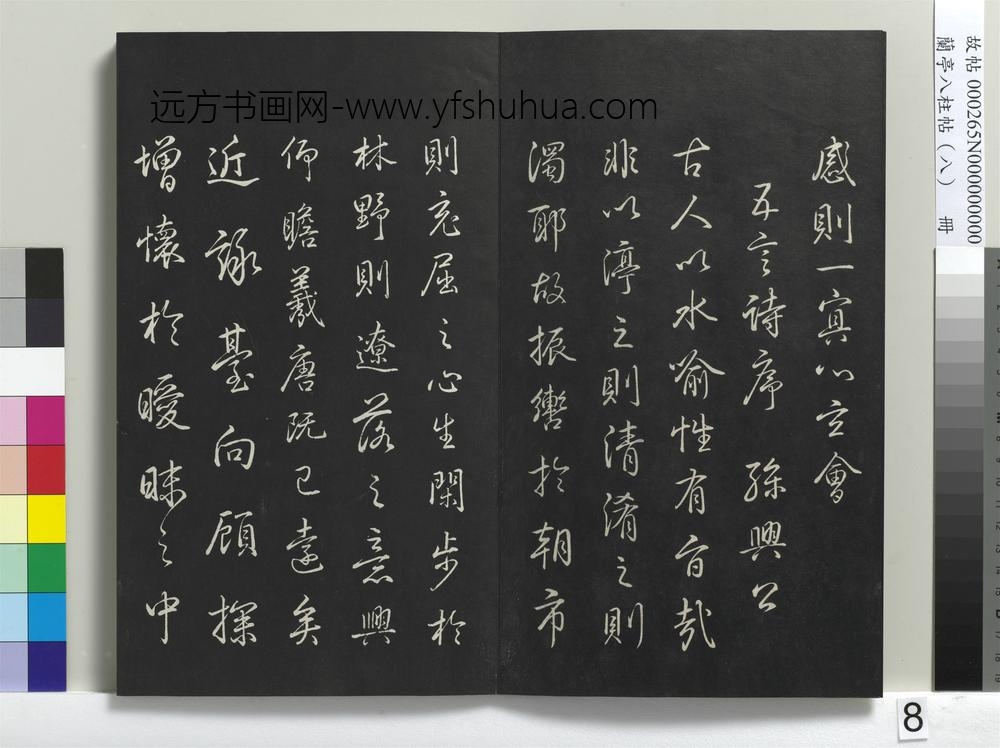 感則一冥心立會
五言詩序 孫興公
古人以水喻性有旨哉
非以渟之則清淆之則
濁耶故振轡於朝市
則充屈之心生閑步於
林野則遼落之意興
仰瞻羲唐既已遠矣
近詠臺向顧探
增懷於曖昧之中
远方书画网-www.yfshuhua.com
故帖 000265N000000000
蘭亭八柱帖（八） 冊
8